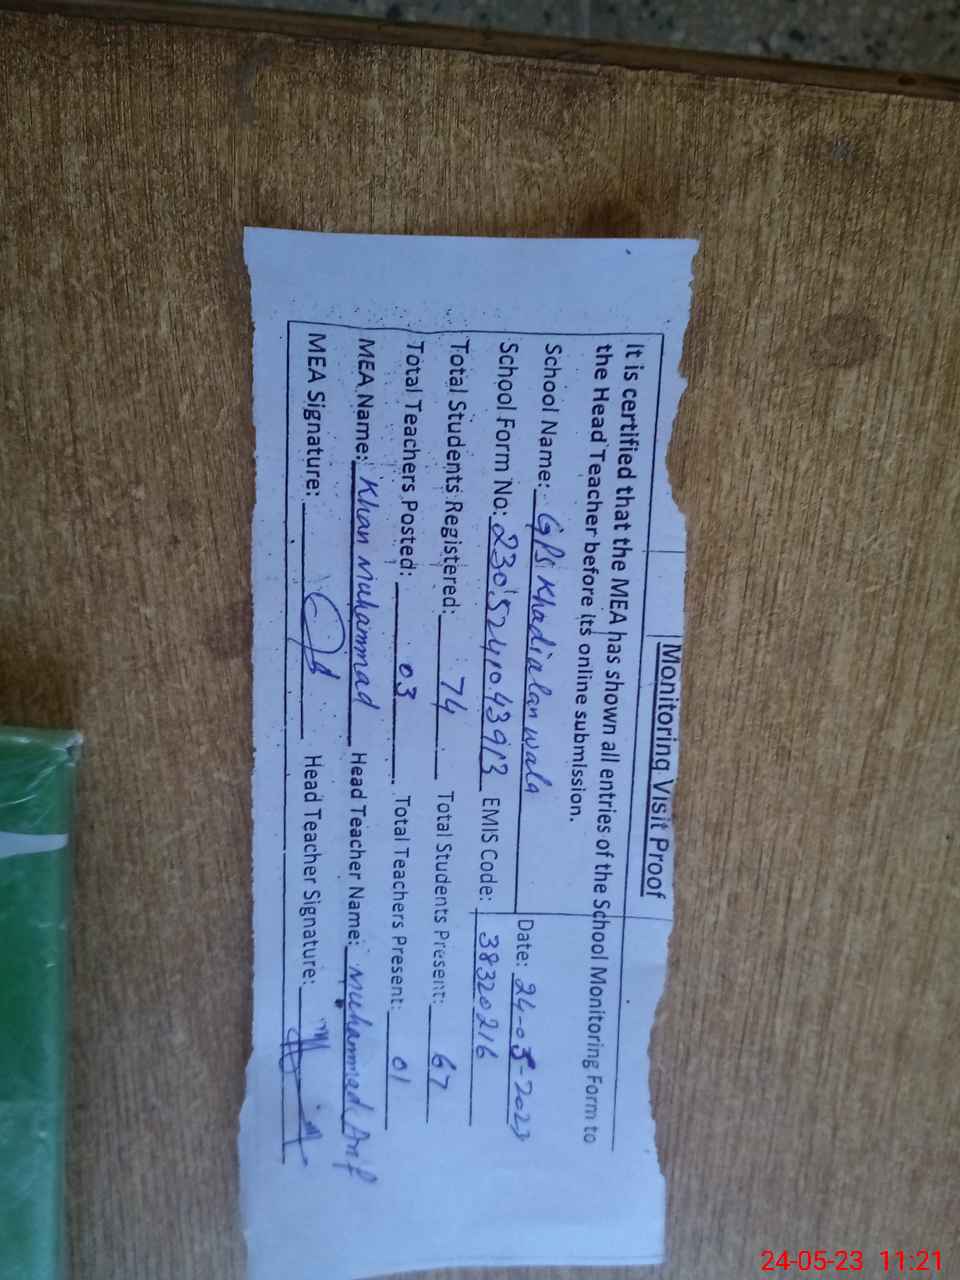 Monitoring Visit Proof
It is certified that the MEA has shown all entries of the School Monitoring Form to
the Head Teacher before its online submission.
School Name: GPS Khadialanwala Date: 24-05-2023
School Form No: 2305241043913 EMIS Code: 38320216
Total Students Registered: 74 Total Students Present: 67
Total Teachers Posted: 03 Total Teachers Present: 01
MEA Name: Khan Muhammad Head Teacher Name: Muhammad
MEA Signature: Head Teacher Signature:
24-05-23 11:21